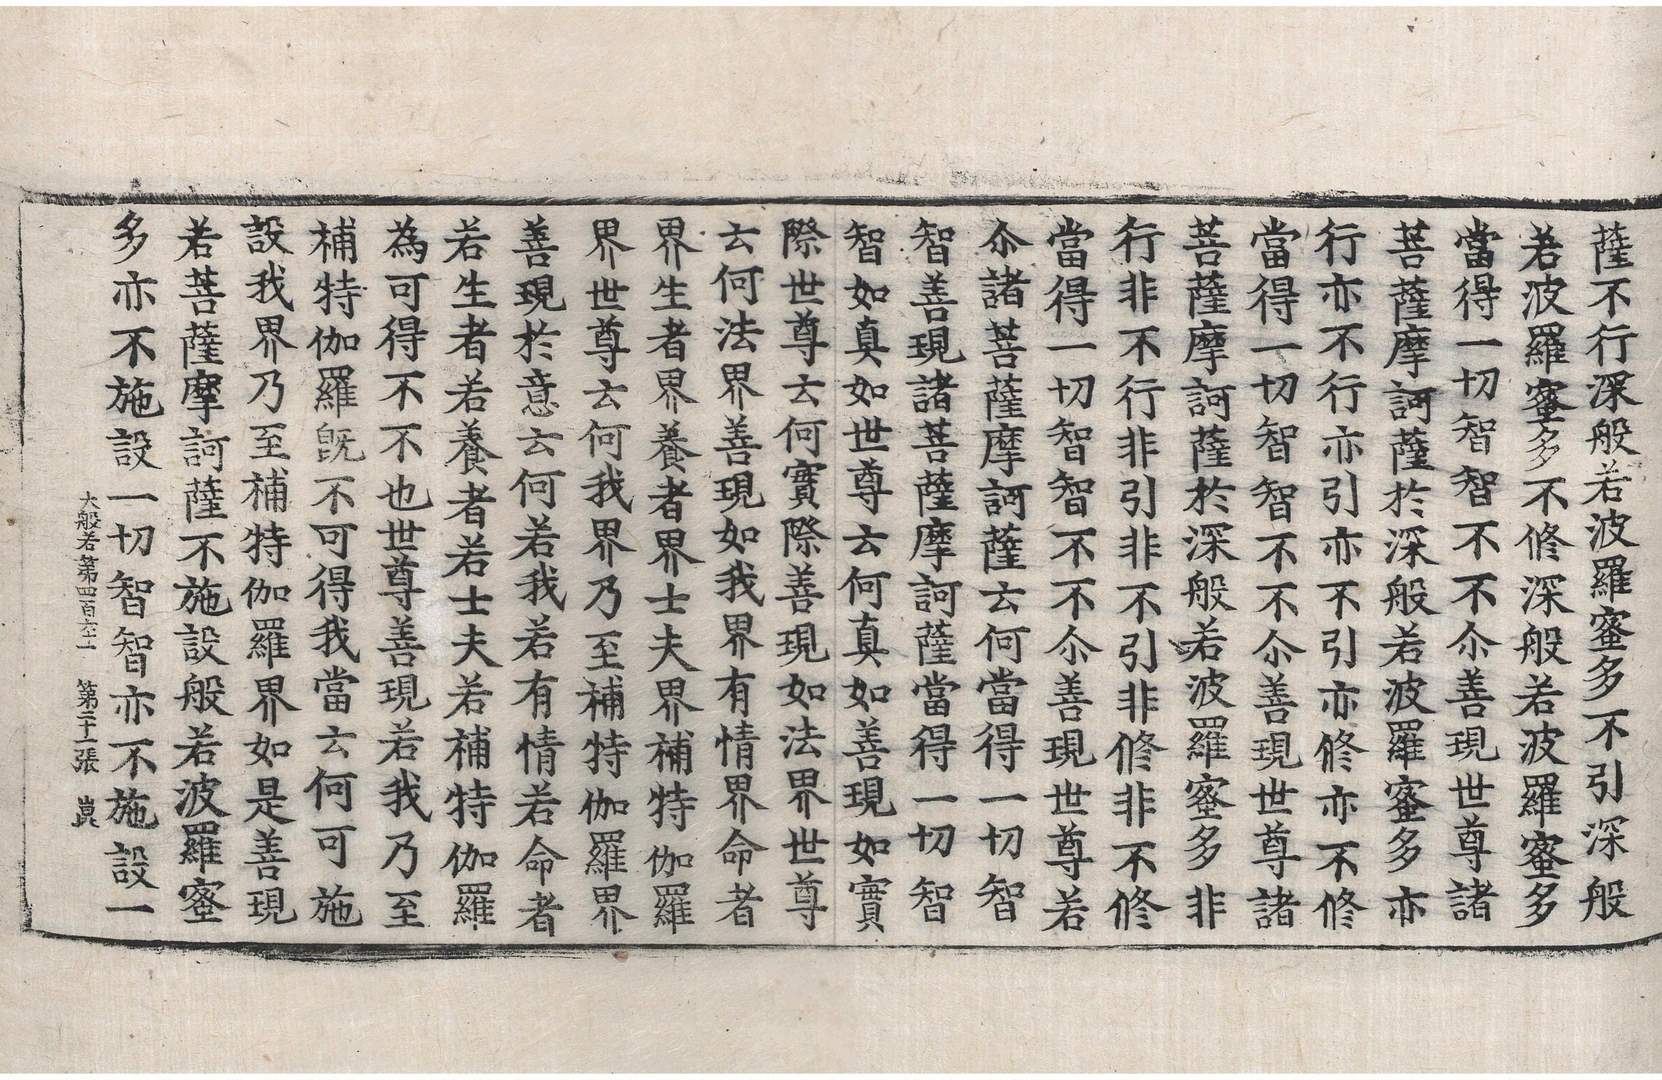 薩不行深般若波羅蜜多不引深般
若波羅蜜多不修深般若波羅蜜多
當得一切智智不不尒善現世尊諸
菩薩摩訶薩於深般若波羅蜜多亦
行亦不行亦引亦不引亦修亦不修
當得一切智智不不尒善現世尊諸
菩薩摩訶薩於深般若波羅蜜多非
行非不行非引非不引非修非不修
當得一切智智不不尒善現世尊若
尒諸菩薩摩訶薩云何當得一切智
智善現諸菩薩摩訶薩當得一切智
智如真如世尊云何真如善現如實
際世尊云何實際善現如法界世尊
云何法界善現如我界有情界命者
界生者界養者界士夫界補特伽羅
界世尊云何我界乃至補特伽羅界
善現於意云何若我若有情若命者
若生者若養者若士夫若補特伽羅
為可得不不也世尊善現若我乃至
補特伽羅旣不可得我當云何可施
設我界乃至補特伽羅界如是善現
若菩薩摩訶薩不施設般若波羅蜜
多亦不施設一切智智亦不施設一
大般若第四百六十一 第二十張 崑